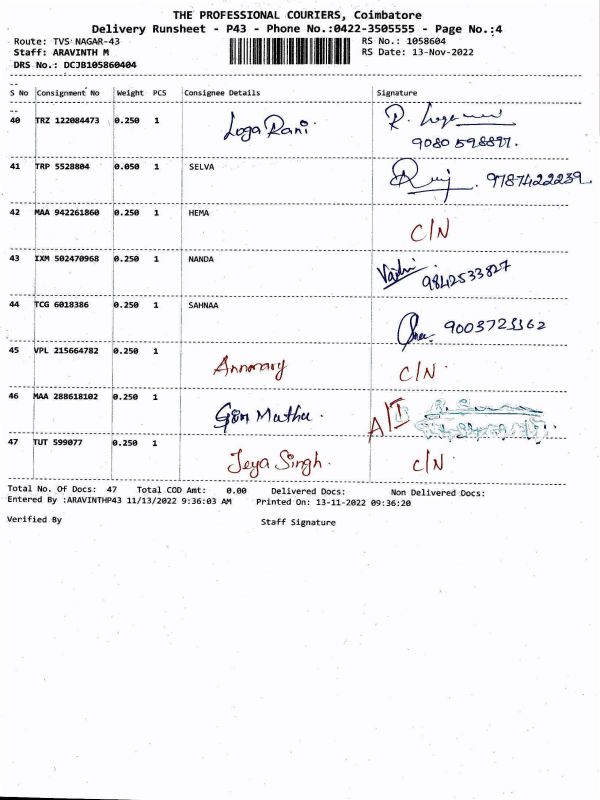 THE PROFESSIONAL COURIERS, Coimbatore
Delivery Runsheet - P43 - Phone No.:0422-3505555 - Page No.:4
Route: TVS NAGAR-43 RS No.: 1058604
Staff: ARAVINTH M RS Date: 13-Nov-2022
DRS No.: DCJB105860404
S No Consignment No Weight PCS Consignee Details Signature
40 TRZ 122084473 0.250 1 Loga Rani
9080598897.
41 TRP 5528804 0.050 1 SELVA
9787422239
42 MAA 942261860 0.250 1 HEMA C/N
43 IXM 502470968 0.250 1 NANDA
9842533827
44 TCG 6018386 0.250 1 SAHNAA
9003723162
45 VPL 215664782 0.250 1 Annmary C/N
46 MAA 288618102 0.250 1 Muthu. A/I
47 TUT 599077 0.250 1 Jeya Singh. C/N
Total No. Of Docs: 47 Total COD Amt: 0.00 Delivered Docs: Non Delivered Docs:
Entered By :ARAVINTHP43 11/13/2022 9:36:03 AM Printed On: 13-11-2022 09:36:20
Verified By Staff Signature